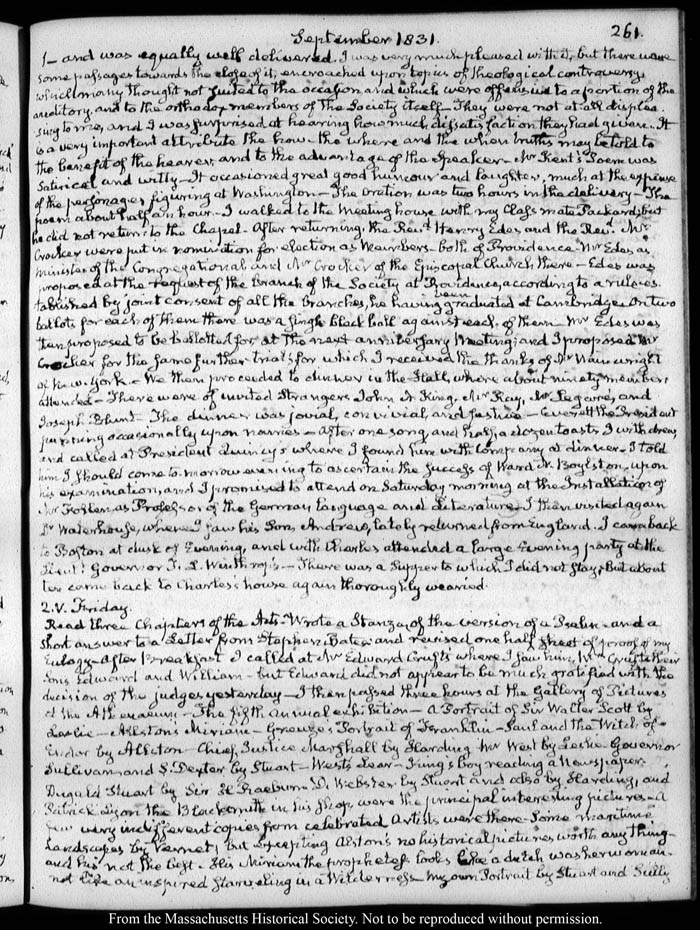 September 1831. 261.
1— and was equally well delivered. I was very much pleased with it, but there were
some passages towards the close of it, encroached upon topics of theological controversy
which many thought not suited to the occasion and which were offensive to a portion of the
auditory, and to the orthodox members of the Society itself— They were not at all displea-
sing to me, and I was surprised at hearing how much dissatisfaction they had given. It
is a very important attribute the how, the where and the when truths may be told to
the benefit of the hearer, and to the advantage of the Speaker— Mr Kent's Poem was
Satirical and witty— It occasioned great good humour and laughter, much at the expense
of the personages figuring at Washington— The Oration was two hours in the delivery— The
poem about half an hour.— I walked to the Meeting house with my Classmate Packard; but
he did not return to the Chapel— After returning, the Revd Henry Edes, and the Revd Mr
Crocker were put in nomination for election as Members— both of Providence. Mr Edes, as
minister of the Congregational and Mr Crocker of the Episcopal Church, there— Edes was
proposed at the request of the Branch of the Society at Providence, according to a rule es-
tablished by joint consent of all the branches, he having been graduated at Cambridge. On two
ballots for each of them there was a single black ball against each of them Mr Edes was
then proposed to be balloted for at the next anniversary Meeting; and I proposed Mr
Crocker for the same further trial; for which I received the thanks of Dr Wainwright
of New-York— We then proceeded to dinner in the Hall, where about ninety members
attended— There were of invited Strangers John A King, Mr Kay, Mr Legaree, and
Joseph Blunt— The dinner was jovial, convivial, and festive— Everett the President
punning occasionally upon names— After one song, and half a dozen toasts I withdrew,
and called at President Quincy's where I found him with company at dinner— I told
him I should come to-morrow evening to ascertain the success of Ward N. Boylston, upon
his examination, and I promised to attend on Saturday morning at the Installation of
Mr Follen as Professor of the German language and Literature— I then visited again
Dr Waterhouse, where I saw his Son, Andrew, lately returned from England. I came back
to Boston at dusk of Evening, and with Charles attended a large Evening party at the
Lieutt Governor T. L. Winthrop's— There was a Supper to which I did not stay; but about
ten came back to Charles's house again thoroughly wearied.
2. V. Friday.
Read three Chapters of the Acts— Wrote a Stanza of the version of a Psalm— and a
short answer to a Letter from Stephen Bates and revised one half sheet of proof of my
Eulogy— After Breakfast I called at Mr Edward Cruft's where I saw him, Mrs Cruft their
Sons Edward and William— but Edward did not appear to be much gratified with the
decision of the judges yesterday— I then passed three hours at the Gallery of Pictures
at the Athenaeum— The fifth annual exhibition— A Portrait of Sir Walter Scott by
Leslie— Allston's Miriam— Greuze's Portrait of Franklin— Saul and the Witch of
Endor by Allston— Chief Justice Marshall by Harding Mr West by Leslie— Governor
Sullivan and S. Dexter by Stuart— West's Lear— King's boy reading a Newspaper.
Dugald Stuart by Sir H Raeburn— D. Webster by Stuart and also by Harding, and
Patrick Lyon the Blacksmith in his Shop, were the principal interesting pictures— A
few very indifferent copies from celebrated Artists were there— Some maritime
Landscapes by Vernet; but excepting Alston's no historical pictures worth any thing—
and his not the best— His Miriam the prophetess looks like a dutch washerwoman—
not like an inspired in a Wilderness— My own Portrait by Stuart and Sully
From the Massachusetts Historical Society. Not to be reproduced without permission.